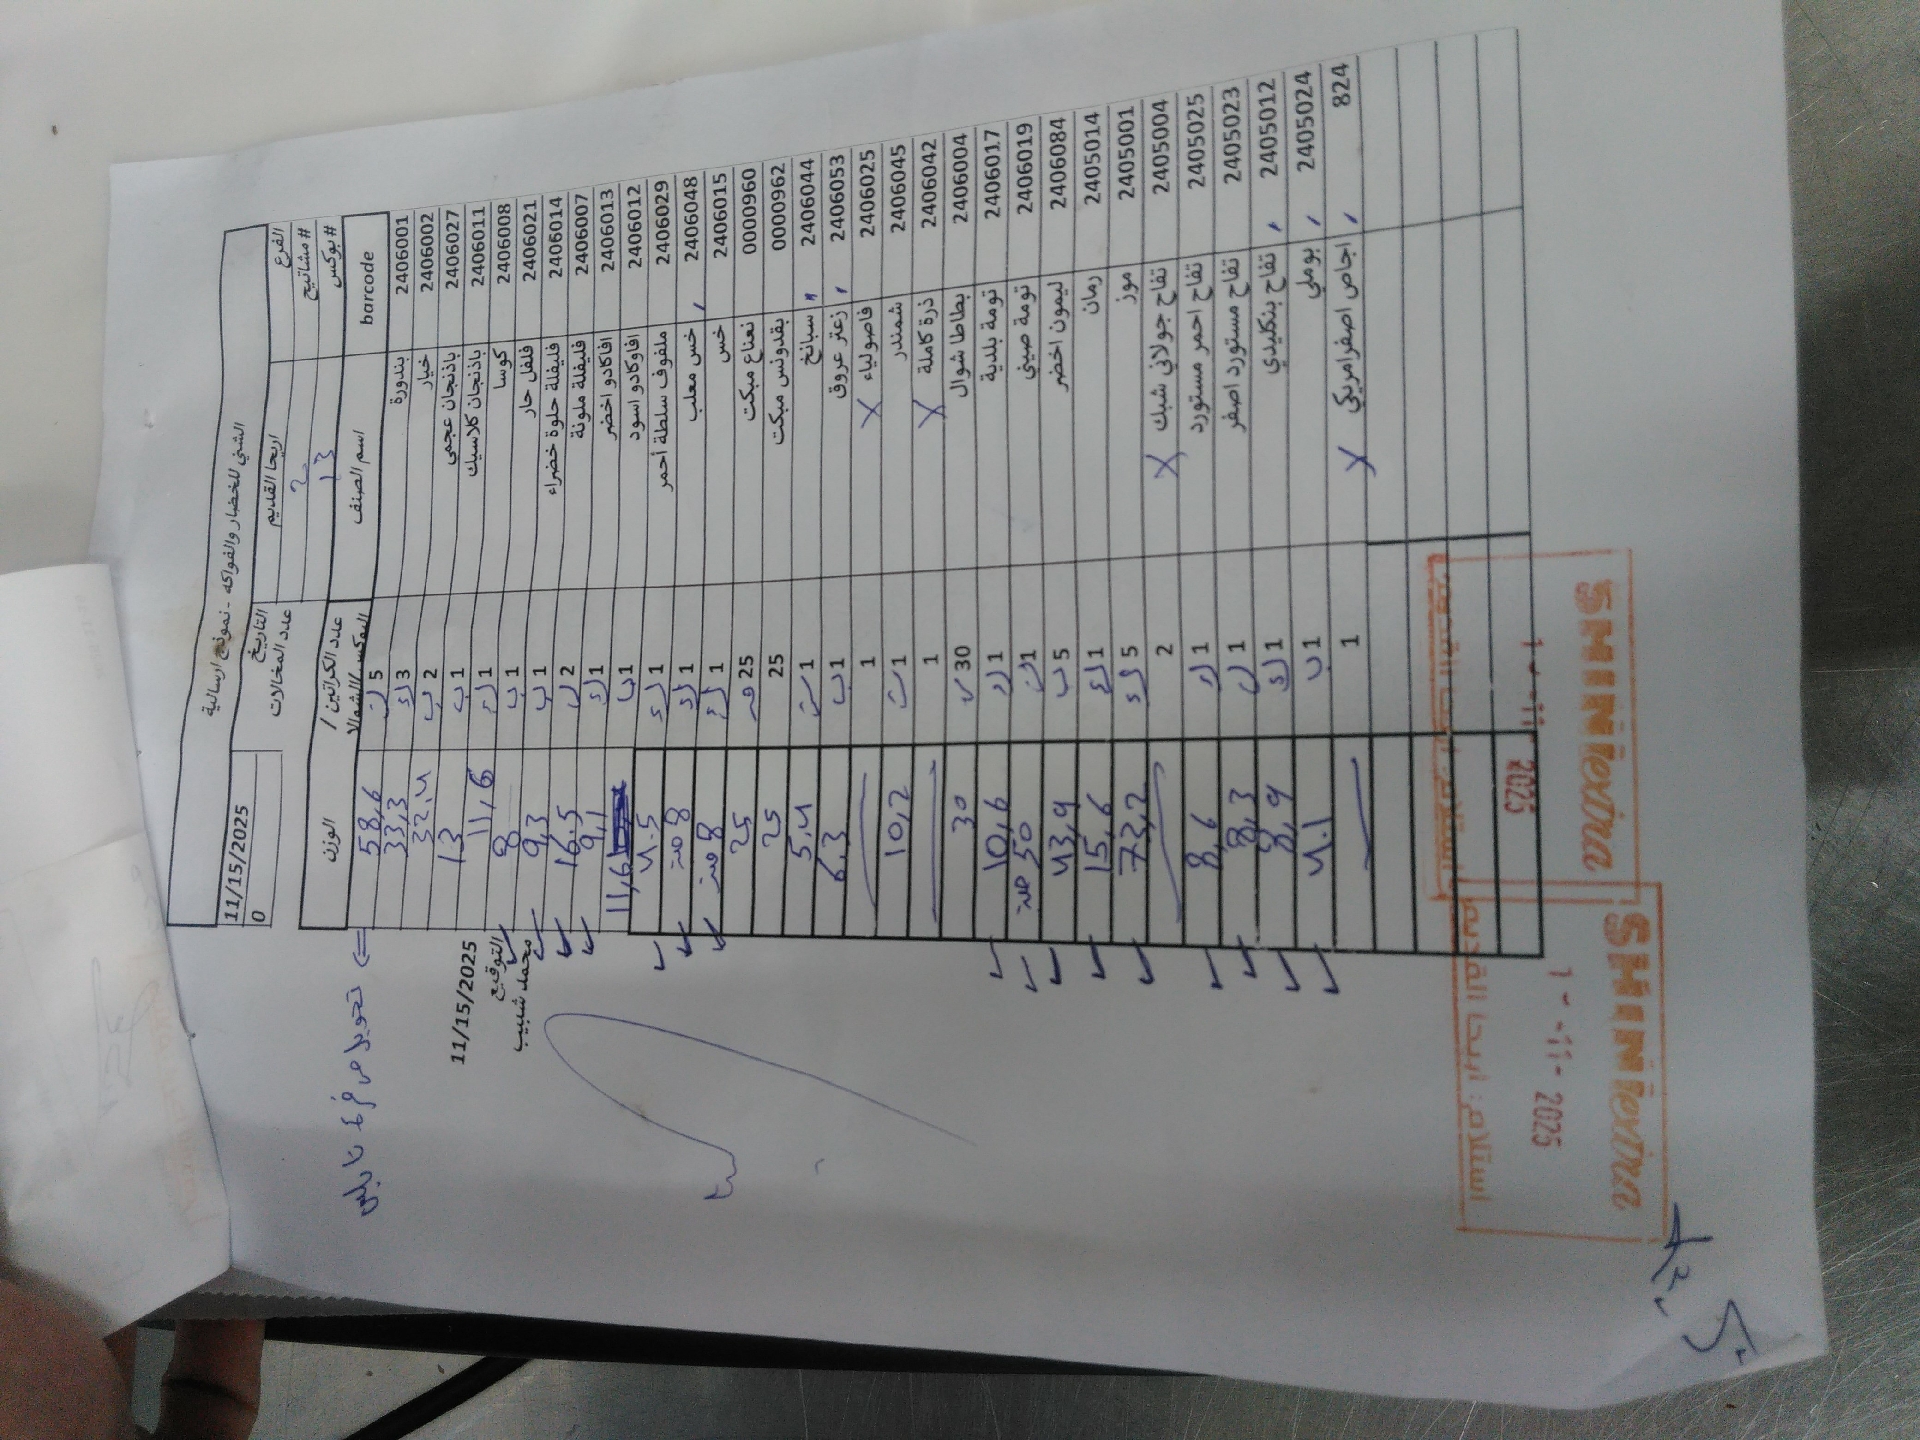 الشني للخضار والفواكه - نموذج ارسالية
الفرع اريحا القديم التاريخ 11/15/2025
# مشاتيح 2 عدد المخالات 0
# بوكس 13
barcode اسم الصنف عدد الكراتين / البوكس/الشوالات الوزن
2406001 بندورة 5 58,6
2406002 خيار 3 33,3
2406027 باذنجان عجمي 2 ب 32,4
2406011 باذنجان كلاسيك 1 ب 13
2406008 كوسا 1 11,6
2406021 فلفل حار 1 ب 8
2406014 فليفلة حلوة خضراء 1 ب 9,3
2406007 فليفلة ملونة 2 16.5
2406013 افاكادو اخضر 1 9,1
2406012 افاوكادو اسود 1 ب 11,6
2406029 ملفوف سلطة احمر 1 4.5
2406048 خس معلب 1 8
2406015 خس 1 8
0000960 نعناع مبكت 25 25
0000962 بقدونس مبكت 25 25
2406044 سبانخ 1 ب 5,4
2406053 زعتر عروق 1 ب 6.3
2406025 فاصولياء X 1
2406045 شمندر 1 ب 10,2
2406042 ذرة كاملة X 1
2406004 بطاطا شوال 30 30
2406017 تومة بلدية 1 10,6
2406019 تومة صيني 1 50
2406084 ليمون اخضر 5 ب 43,9
2405014 رمان 1 15,6
2405001 موز 5 73,2
2405004 تفاح جولاني شبك X 2
2405025 تفاح احمر مستورد 1 8,6
2405023 تفاح مستورد اصفر 1 8,3
2405012 تفاح بنكليدي 1 8,9
2405024 بوملي 1 ب 4.1
824 اجاص اصفرامريكي X 1
تحويل من فرع نابلس
11/15/2025
التوقيع
محمد شبيب
2025
SHINieina
استلام: اريحا القديمة
2025
SHINieina